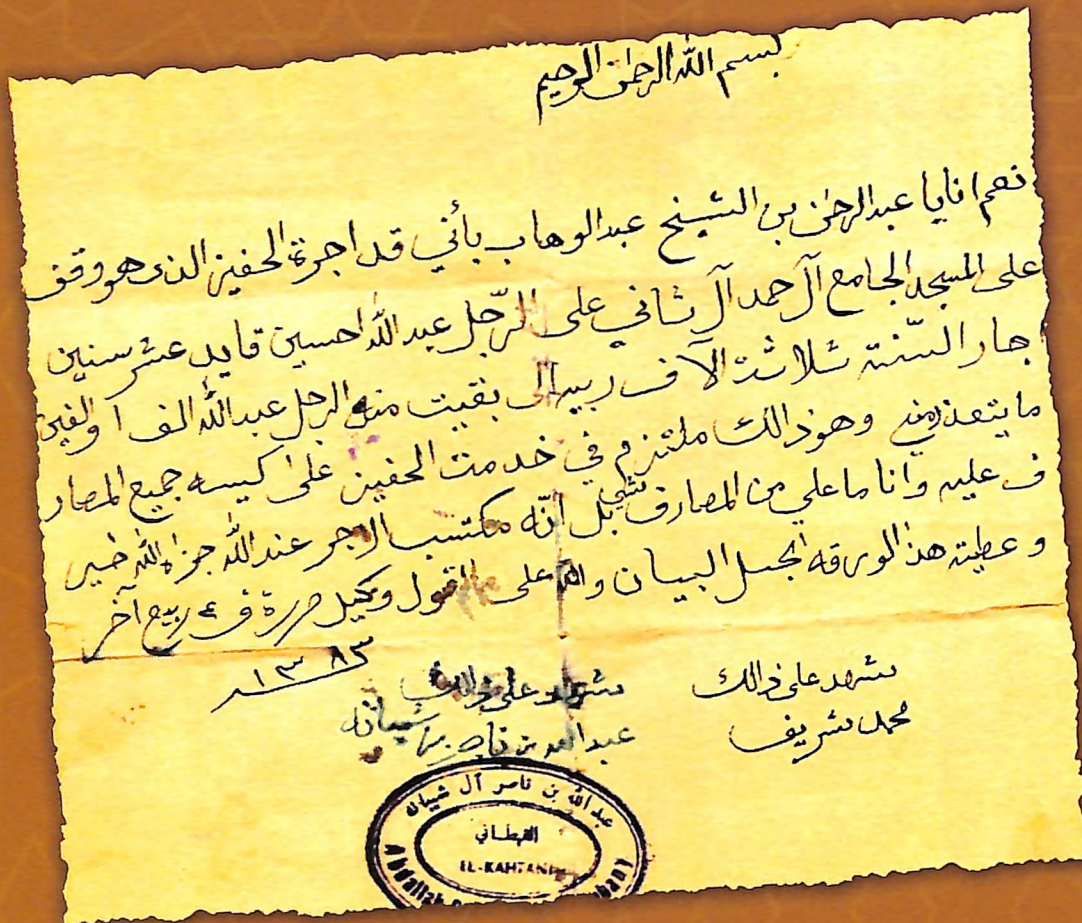 بسم الله الرحمن الرحيم
نعم انايا عبدالرحمن بن الشيخ عبدالوهاب بأني قد اجرة الحفيز الذي هو وقف
على المسجد الجامع آل حمد آل ثاني على الرّجل عبدالله احسين قايد عشر سنين
اجار السّنة ثلاثة الآف ربيه الى بقيت منه الرجل عبدالله الف او الفين
ما يتعذرمني وهو ذالك ملتزم في خدمت الحفيز على كيسه جميع المصار
ف عليه وانا ما علي من المصارف شي بل انّه مكتسب الاجر عند الله جزاه الله خير
وعطيته هذ الورقه الجسل البيان والله على القول وكيل حررة في ٤ ربيع آخر
١٣٨٣
نشهد على ذالك
محمد شريف
نشهد على ذالك
عبدالله بن ناصر شبانه
عبدالله بن ناصر آل شبانه
القحطاني
EL-KAHTANI
Abdallah